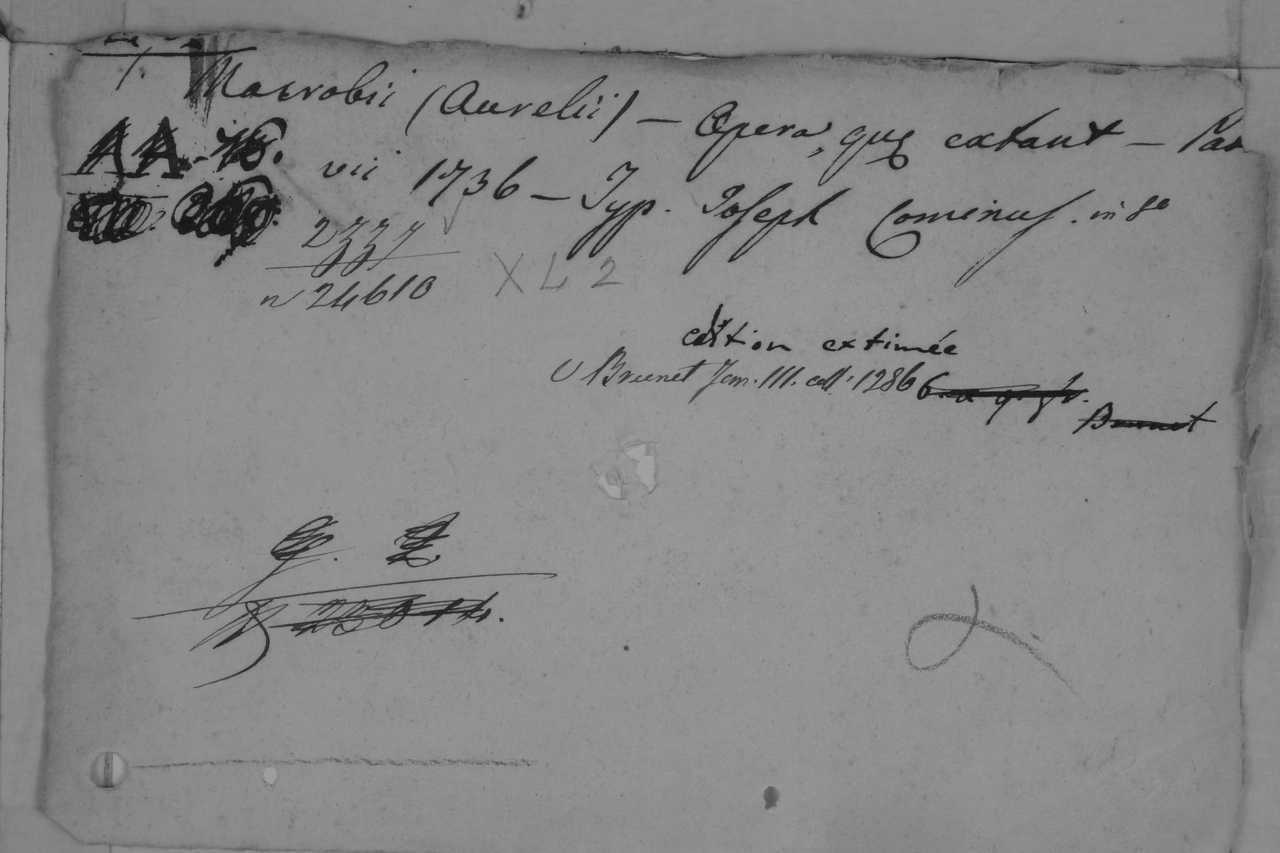 Macrobii (Aurelii) — Opera, quę extant — Pata
AA.
vii 1736 — Typ. Joseph Cominus. in 8º
2337
nº 24610
XL 2
edition extimée
V Brunet Tom. III. coll. 1286
Brunet